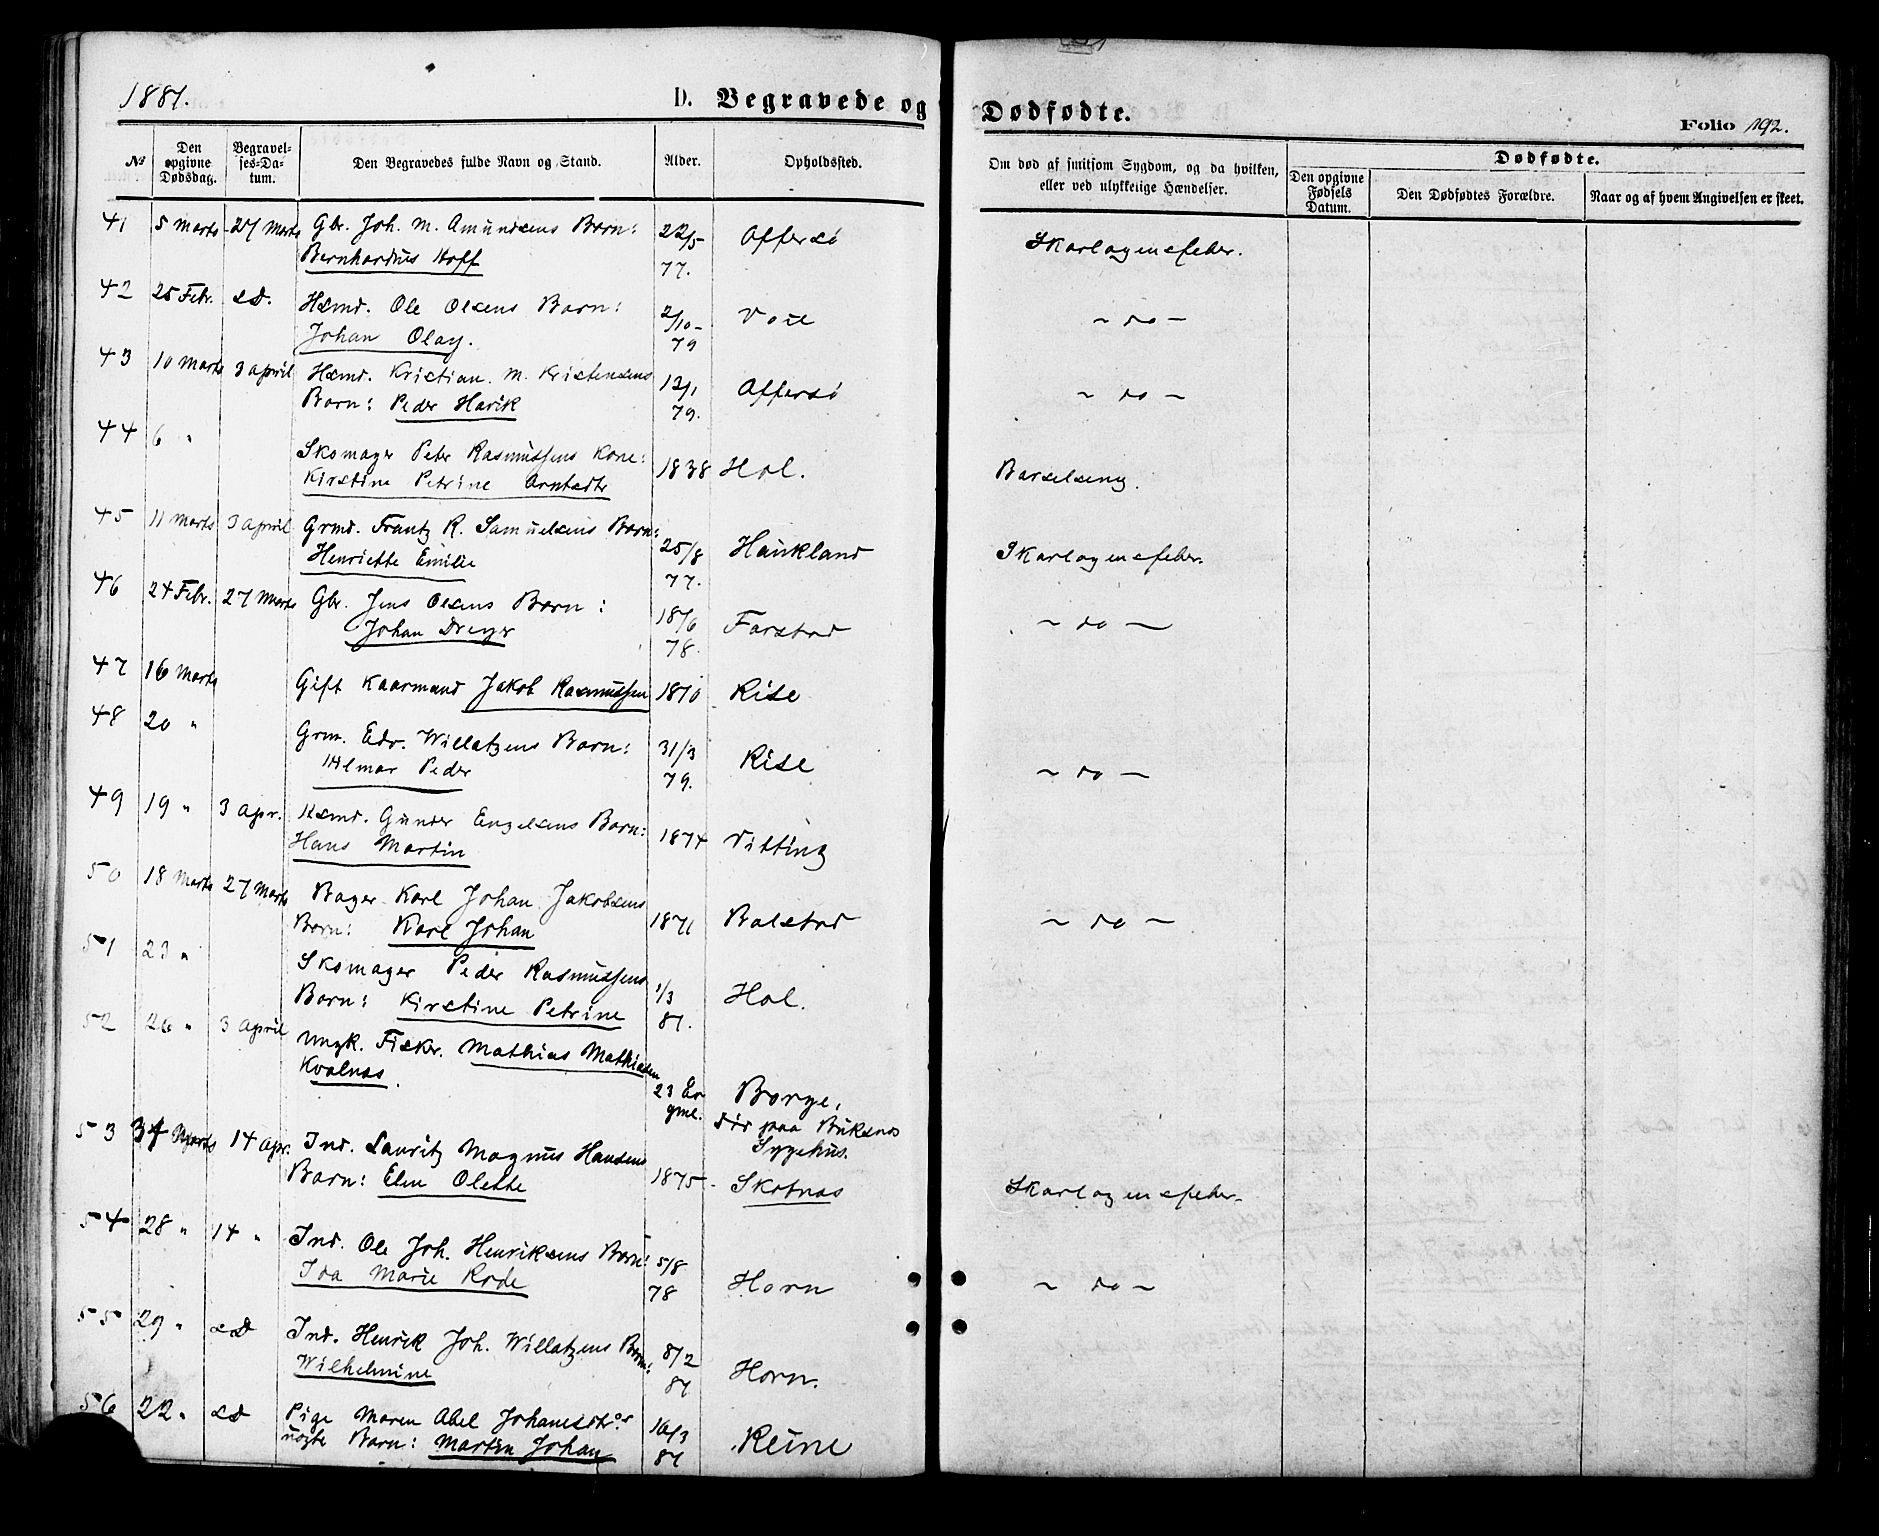 1881.
D. Begravede og Dødfødte.
Folio 192.
№ Den opgivne Dødsdag. Begravelses-Datum. Den Begravedes fulde Navn og Stand. Alder. Opholdssted. Om død af smitsom Sygdom, og da hvilken, eller ved ulykkelige Hændelser. Dødfødte.
Den opgivne Fødsels Datum. Den Dødfødtes Forældre. Naar og af hvem Angivelsen er skeet.
41 5 Marts 27 Marts Gbr. Joh. M. Amundsens Barn: 22/5 Offersø Skarlagensfeber.
Bernhardius Hoff 77.
42 25 Febr. s.D. Hsmd. Ole Olsens Barn: 2/10 - do -
Johan Olay. 79
43 10 Marts 3 April Hsmd. Kristian M. Kristensens 12/1 Offersø - do -
Barn: Peder Harik 79.
44 6 "
Skomager Peter Rasmussens Kone: 1838 Hol. Barselseng.
Kirstine Petrine Arntsdtr
45 11 Marts 3 April Grmd. Frantz R. Samuelsens Barn: 25/8 Haukland Skarlagensfeber.
Henriette Emilie 77.
46 24 Febr. 27 Marts Gbr. Jens Olsens Barn: 18/6 Farstad - do -
Johan Dreyer 78.
47 16 Marts Gift Kaarmand Jakob Rasmussen 1810 Rise
48 20 "
Grm. Edv. Willatzens Barn: 31/3 Rise - do -
Hilmar Peder 79.
49 19 " 3 Apr. Hsmd. Gunder Engelsens Barn: 1874 Vitting
Hans Martin
50 18 Marts 27 Marts Bager Karl Johan Jakobsens
Barn: Karl Johan 1871 Balstad - do -
51 23 "
Skomager Peder Rasmussens 1/3 Hol.
Barn: Kirstine Petrine 81.
52 26 " 3 April Ungk. Fisker. Mathias Mathiesen
Kvalnæs. 23 Ar gml. Borge,
død paa Buksnæs
Sygehus.
53 Marts 14 Apr. Ind. Lauritz Magnus Hansens
Barn: Elen Olette 1875 Skotnæs Skarlagensfeber.
54 28 " 14 " Ind. Ole Joh. Henriksens Barn: 5/8
Ida Marie Rode 78 Horn - do -
55 29 " s.D Ind. Henrik Joh. Willatzens Barn: 8/2
Wilhelmine 81 Horn.
56 22 " s.D Pige Maren Abel Johannesdtrs 16/3
uægte Barn: Martin Johan 81 Reine